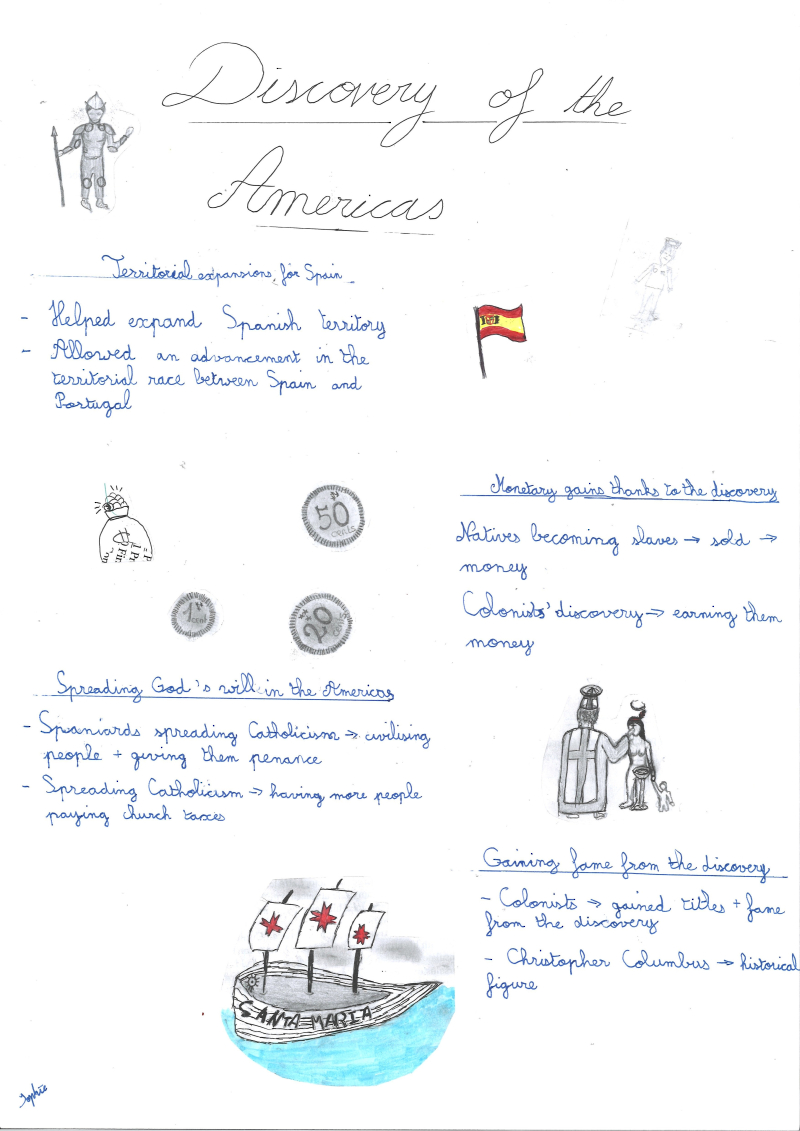 Discovery of the
Americas
Territorial expansions for Spain
- Helped expand Spanish territory
- Allowed an advancement in the
territorial race between Spain and
Portugal
50
cents
1
cent
20
Monetary gains thanks to the discovery
Natives becoming slaves → sold →
money
Colonists' discovery → earning them
money
Spreading God's will in the Americas
- Spaniards spreading Catholicism → civilising
people + giving them penance
- Spreading Catholicism → having more people
paying church taxes
Gaining fame from the discovery
- Colonists → gained titles + fame
from the discovery
- Christopher Columbus → historical
figure
SANTA MARIA
Sophie